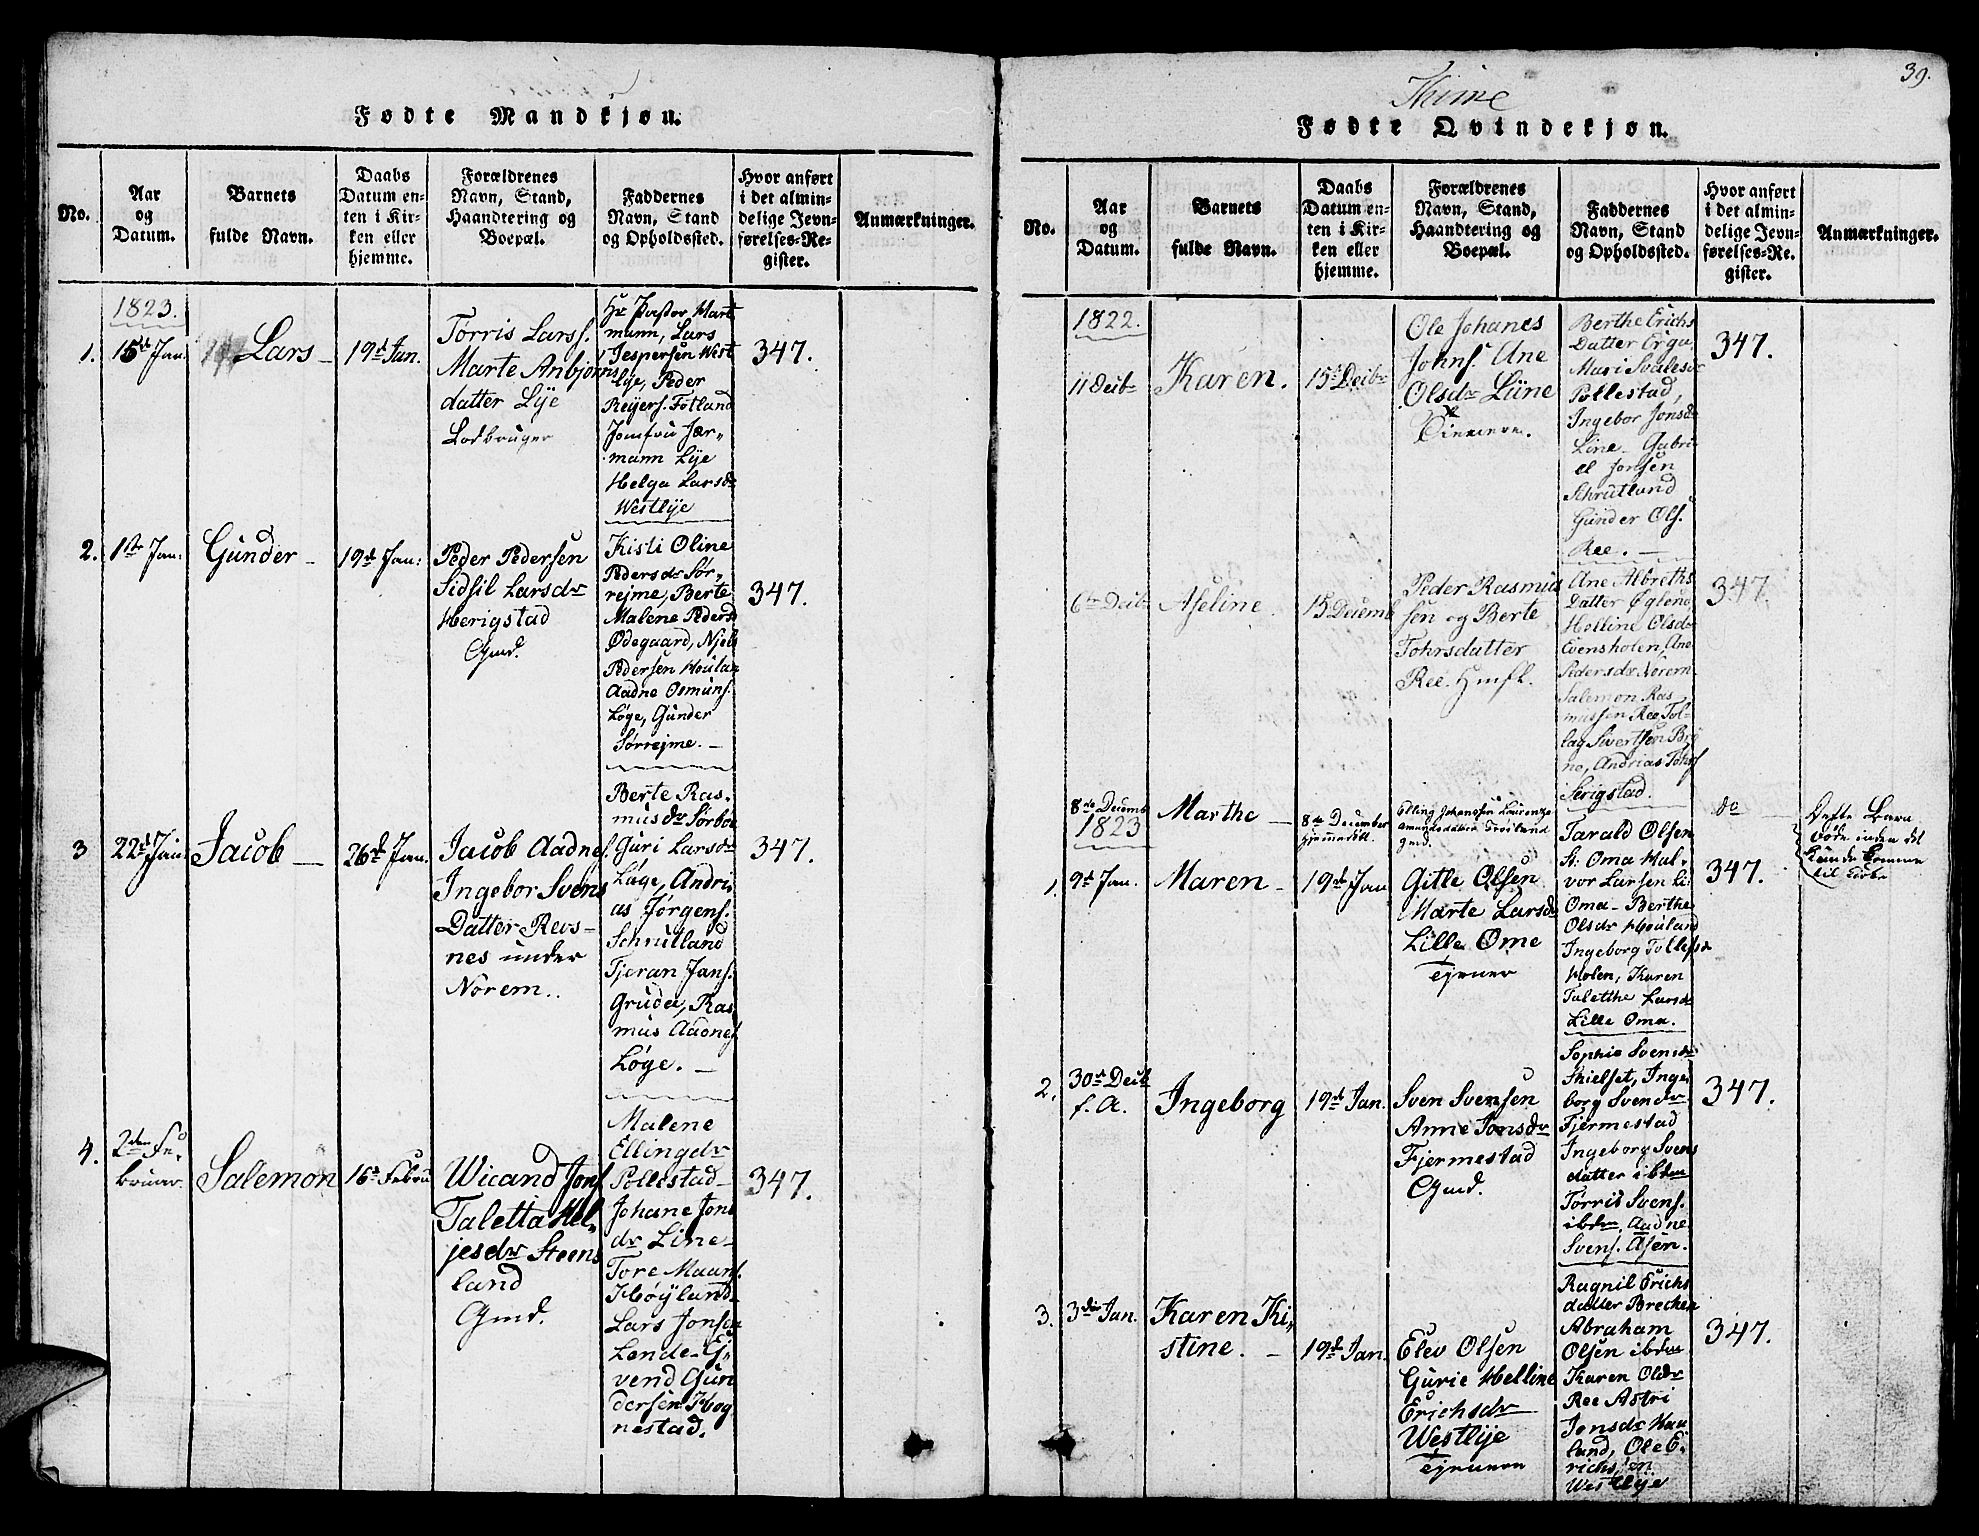 Fødte Mandkjøn.
No.
Aar
og
Datum.
Barnets
fulde Navn.
Daabs
Datum en-
ten i Kir-
ken eller
hjemme.
Forældrenes
Navn, Stand,
Haandtering og
Boepæl.
Faddernes
Navn, Stand
og Opholdssted.
Hvor anført
i det almin-
delige Jevn-
førelses-Re-
gister.
Anmærkninger.
1823.
1.
15d Jan.
Lars
19d Jan.
Tørris Larss.
Marte Anbjørns
datter Lye
Lodbruger
Hr Pastor Hart
mann, Lars
Jespersen West
lye, Peder
Reyers. Fotland
Jomfru Hær„
mann Lye
Helga Larsdr
Westlye
347.
2.
1ste Jan:
Gunder
19d Jan:
Peder Pedersen
Sidsil Larsdr
Herigstad
Gmd.
Kisti Oline
Pedersdr Sør„
rejme, Berte
Malene Peders
Ødegaard, Njell
Pedersen Houlan
Aadne Osmuns.
Løge, Gunder
Sørrejme.
347.
3
22d Jan:
Jacob
26d Jan.
Jacob Aadnes.
Ingebor Svens
Datter Revs-
nes under
Norem.
Berte Ras.
musdr Sørboe
Guri Larsdr
Løge, Andri
as Jørgens.
Schrulland
Tjeran Jans.
Gruda, Ras
mus Aadnes.
Løge.
347.
4.
2den Fe„
bruar
Salemon
16d Febru
Wicand Jons
Taletta Hel„
jesdr Steens
land
Gmd.
Malene
Ellingdr
Pollestad
Johane Jons
dr Line
Tore Maans.
Høyland
Lars Jonsen
Lende Ej„
vend Gun
dersen Hog
nestad.
347.
39.
Thime
Fødte Qvindekjøn.
No.
Aar
og
Datum.
Barnets
fulde Navn.
Daabs
Datum en-
ten i Kir-
ken eller
hjemme.
Forældrenes
Navn, Stand,
Haandtering og
Boepæl.
Faddernes
Navn, Stand
og Opholdssted.
Hvor anført
i det almin-
delige Jevn-
førelses-Re-
gister.
Anmærkninger.
1822.
11 Decbr
Karen.
15d Decbr
Ole Johanes
Johns. Ane
Olsdr Line
Berthe Erichs
Datter Orga,
Mari Svalesdr
Pollestad,
Ingebor Jonsdr
Line Gabri
el Jonsen
Schrutland
Gunder Ols.
Ree.
347.
6te Decbr
Aseline.
15 Decemb
Peder Rasmus
sen og Berte
Tohrsdatter
Ree. Husfl.
Ane Albreths
Datter Øglend,
Helline Olsdr
Evensholen, Ane
Pedersdr Norem
Salemon Ras
mussen Ree Tol
lag Sivertsen Bry
ne, Andrias Tohrs
Serigstad.
347.
8de Decemb
Marthe
8de December
hjemmedøbt.
Elling Johanssen Laurentze
Amundsdatter Frøiland
gmd.
do
Dette Barn
døde inden det
kunde komme
til Kirke
1823
1.
9d Jan.
Maren
19d Jan
Gitle Olsen
Marte Larsdr
Lille Ome
Ejruer
Tarald Olsen
St: Oma Hal„
vor Larsen Li:
Oma Berthe
Olsdr Houland
Ingeborg Tollefsdr
Holen, Karen
Taletthe Larsdr
Lille Oma.
347.
2.
30d Decbr
f. A.
Ingeborg
19d Jan.
Sven Svensen
Anne Jonsdr
Fjermestad
Gmd.
Sophie Svensdr
Skielset, Inge
borg Svendr
Fjermestad
Ingeborg Svens
datter ibdm
Tørris Svens.
ibdm, Aadne
Svens. Asen.
347.
3.
3die Jan.
Karen Ki„
stine.
19d Jan.
Elev Olsen
Gurie Helline
Erichsdr
Westlye
Ragnil Erichs
datter Brecken
Abraham
Olsen ibdm
Karen Oldr
Ree Astri
Jonsdr Hau
land, Ole E„
richssen
Westlye
347.